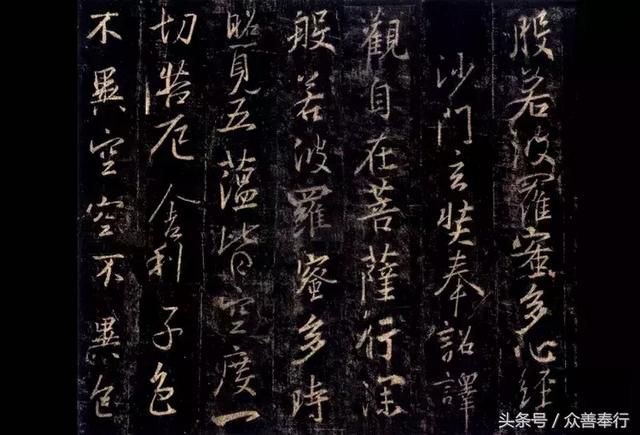 般若波羅蜜多心經
沙門玄奘奉詔譯
觀自在菩薩行深
般若波羅蜜多時
照見五蘊皆空度一
切苦厄舍利子色
不異空空不異色
头条号 / 众善奉行